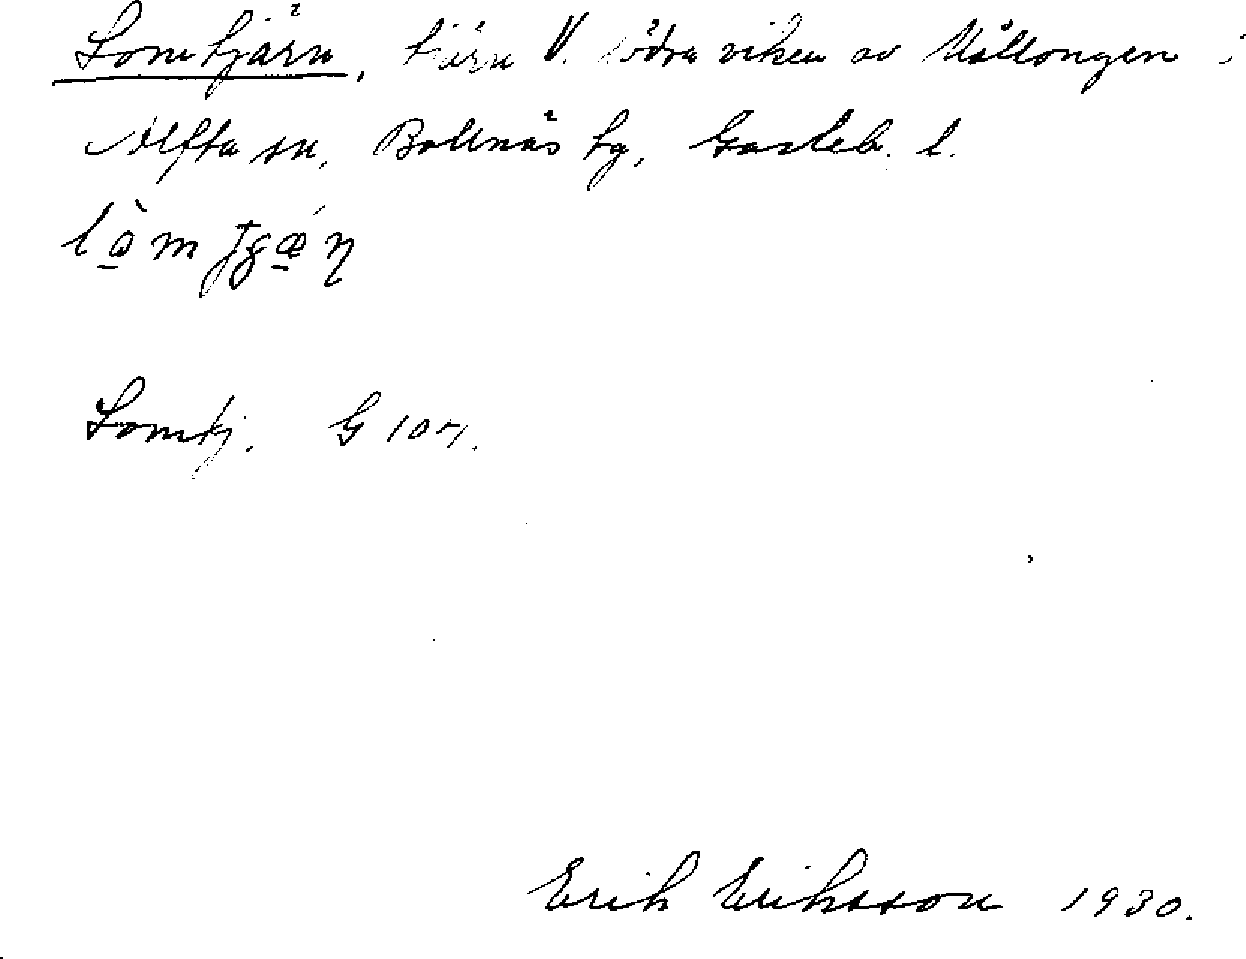 Lomtjärn, tjärn V. södra viken av Mållongen i
Alfta sn, Bollnäs tg, Gävleb. l.
Lomtj. G 107.
Erik Eriksson 1930.